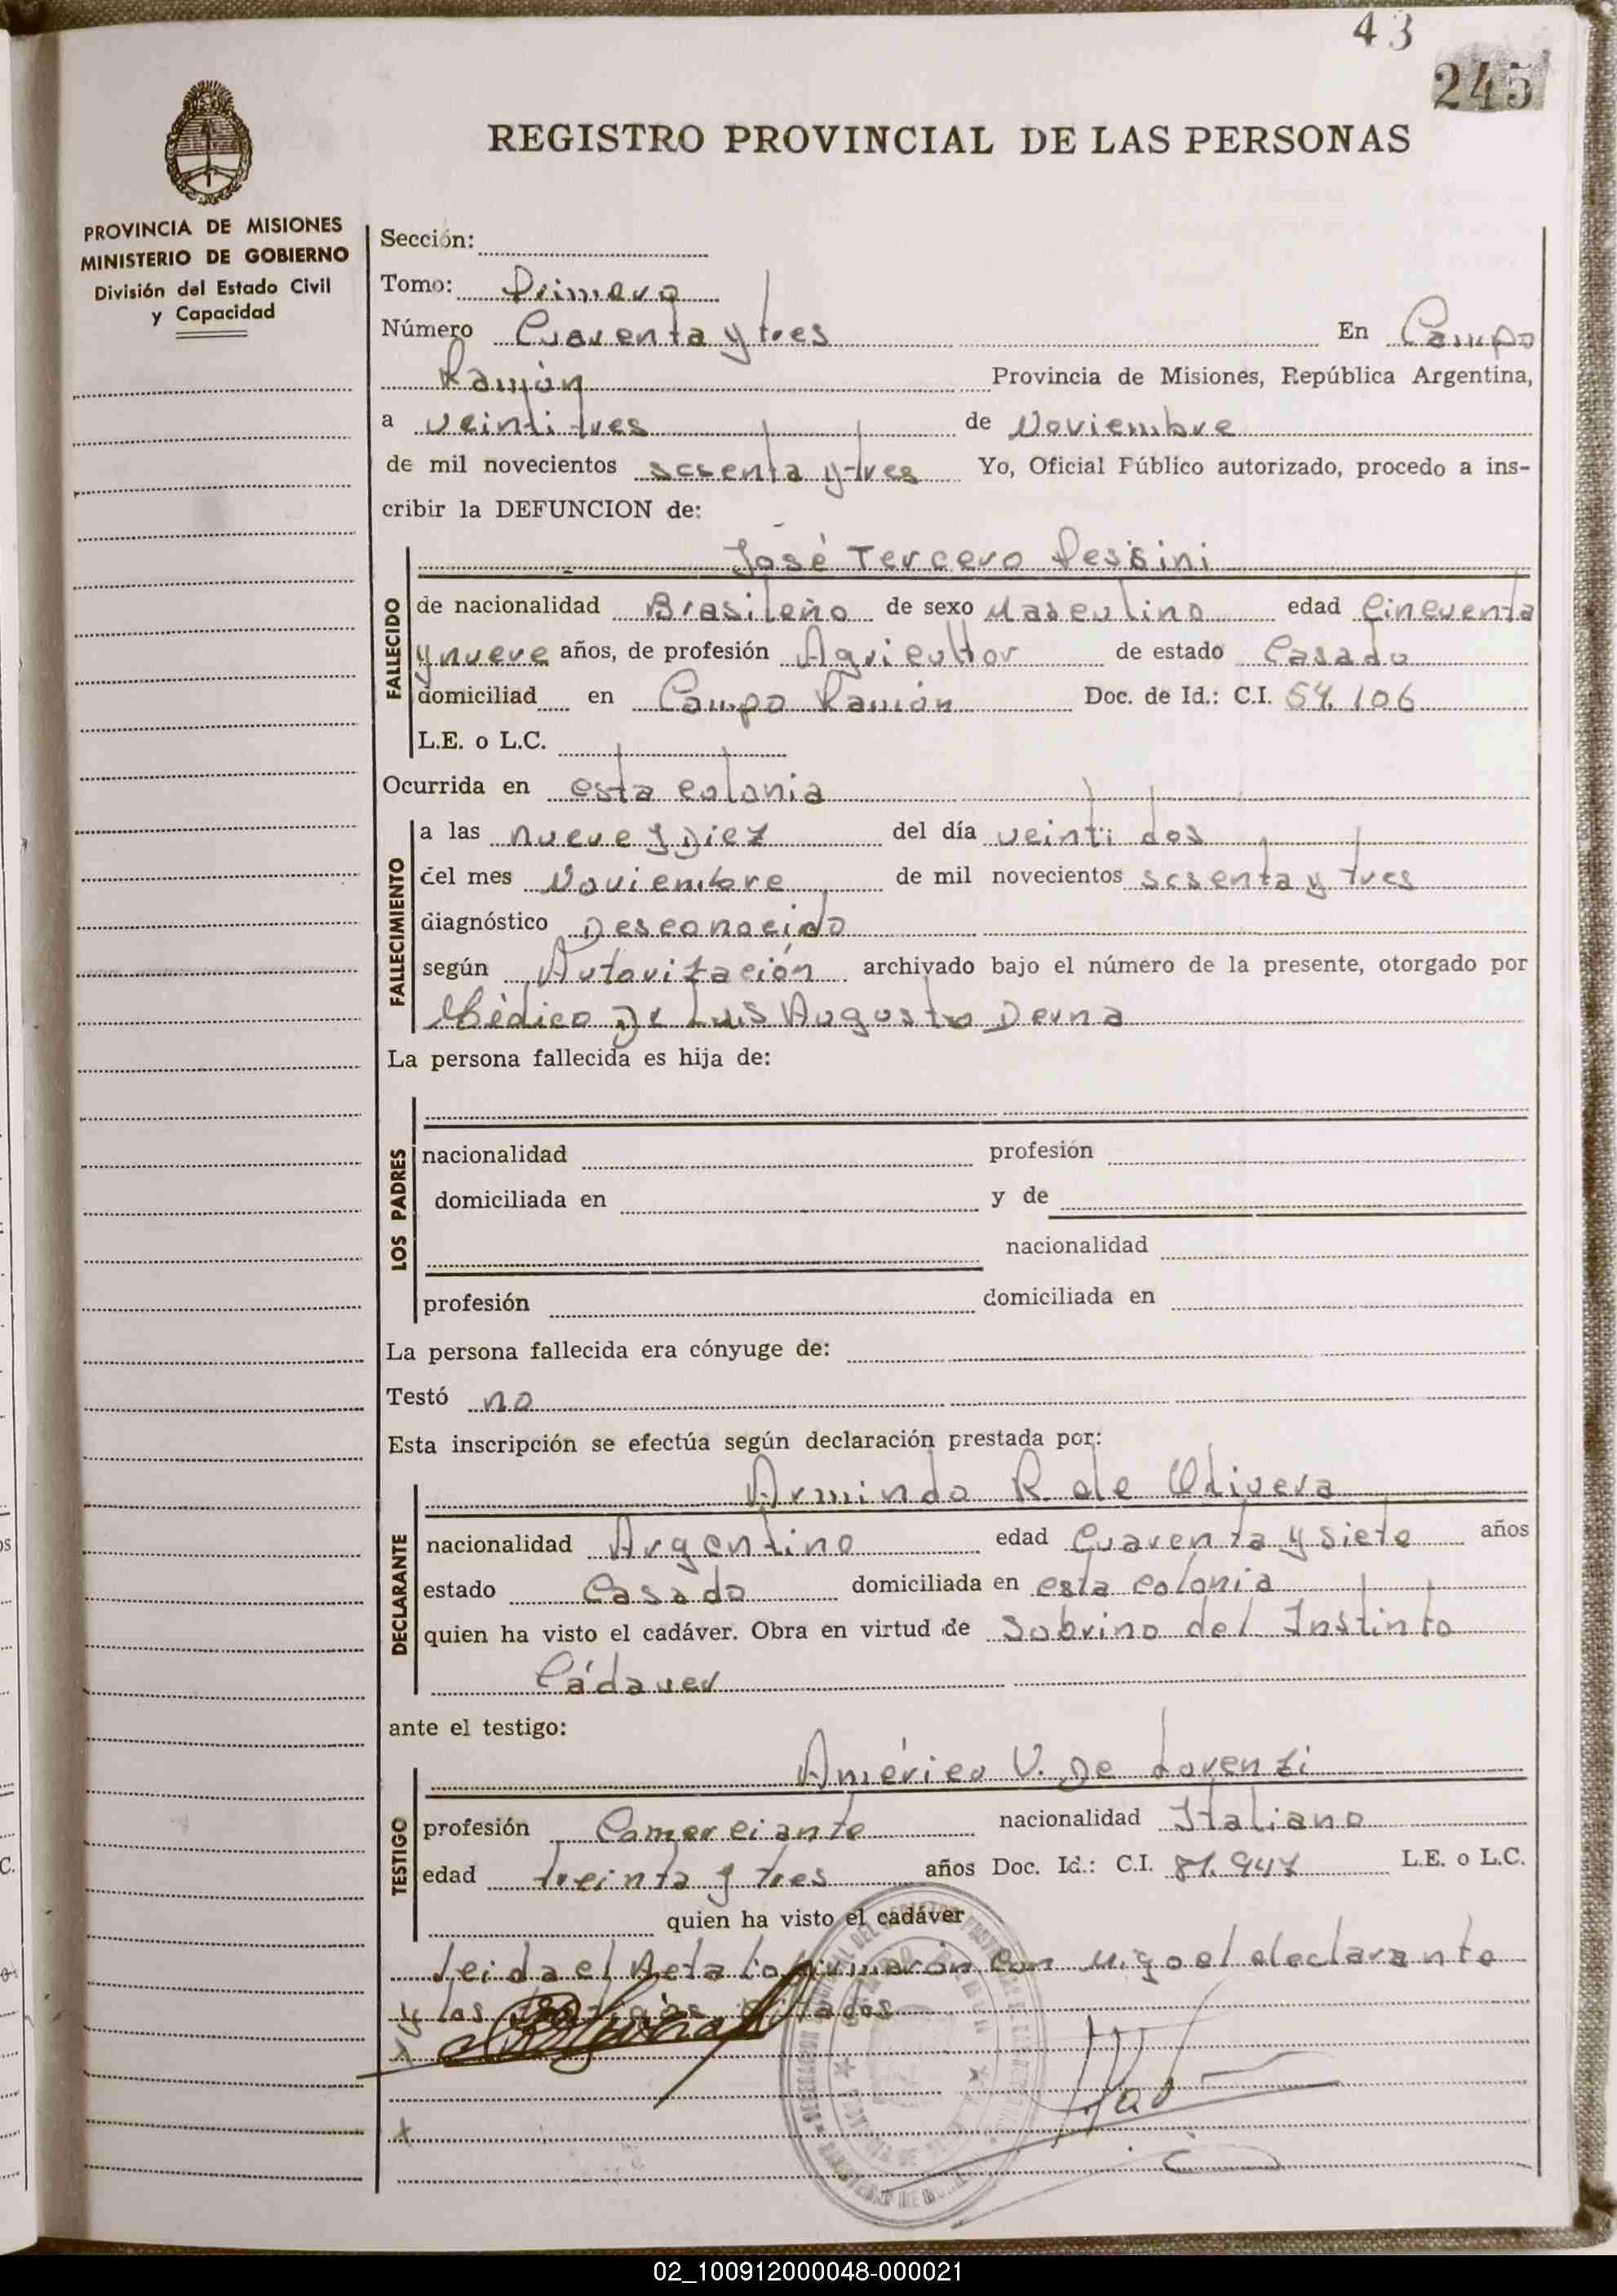 43
245
REGISTRO PROVINCIAL DE LAS PERSONAS
PROVINCIA DE MISIONES
MINISTERIO DE GOBIERNO
División del Estado Civil
y Capacidad
Sección:
Tomo: Primero
Número Cuarenta y tres En Campo
Ramón Provincia de Misiones, República Argentina,
a veinti tres de Noviembre
de mil novecientos sesenta y tres Yo, Oficial Público autorizado, procedo a ins-
cribir la DEFUNCION de:
José Tercero Pessini
FALLECIDO
de nacionalidad Brasileño de sexo Masculino edad Cincuenta
y nueve años, de profesión Agricultor de estado Casado
domiciliad en Campo Ramón Doc. de Id.: C.I. 54.106
L.E. o L.C.
Ocurrida en esta colonia
FALLECIMIENTO
a las nueve y Diez del día veinti dos
del mes Noviembre de mil novecientos sesenta y tres
diagnóstico Desconocido
según Autorización archivado bajo el número de la presente, otorgado por
Médico Dr Luis Augusto Derna
La persona fallecida es hija de:
LOS PADRES
nacionalidad profesión
domiciliada en y de
nacionalidad
profesión domiciliada en
La persona fallecida era cónyuge de:
Testó no
Esta inscripción se efectúa según declaración prestada por:
Armindo R. de Olivera
DECLARANTE
nacionalidad Argentino edad Cuarenta y siete años
estado Casado domiciliada en esta colonia
quien ha visto el cadáver. Obra en virtud de Sobrino del Instinto
Cádaver
ante el testigo:
Américo V. De Lorenzi
TESTIGO
profesión Comerciante nacionalidad Italiano
edad treinta y tres años Doc. Id.: C.I. 81.947 L.E. o L.C.
quien ha visto el cadáver
Leida el Acta la firmarón con migo el declarante
y los testigos citados
x
x
02_100912000048-000021